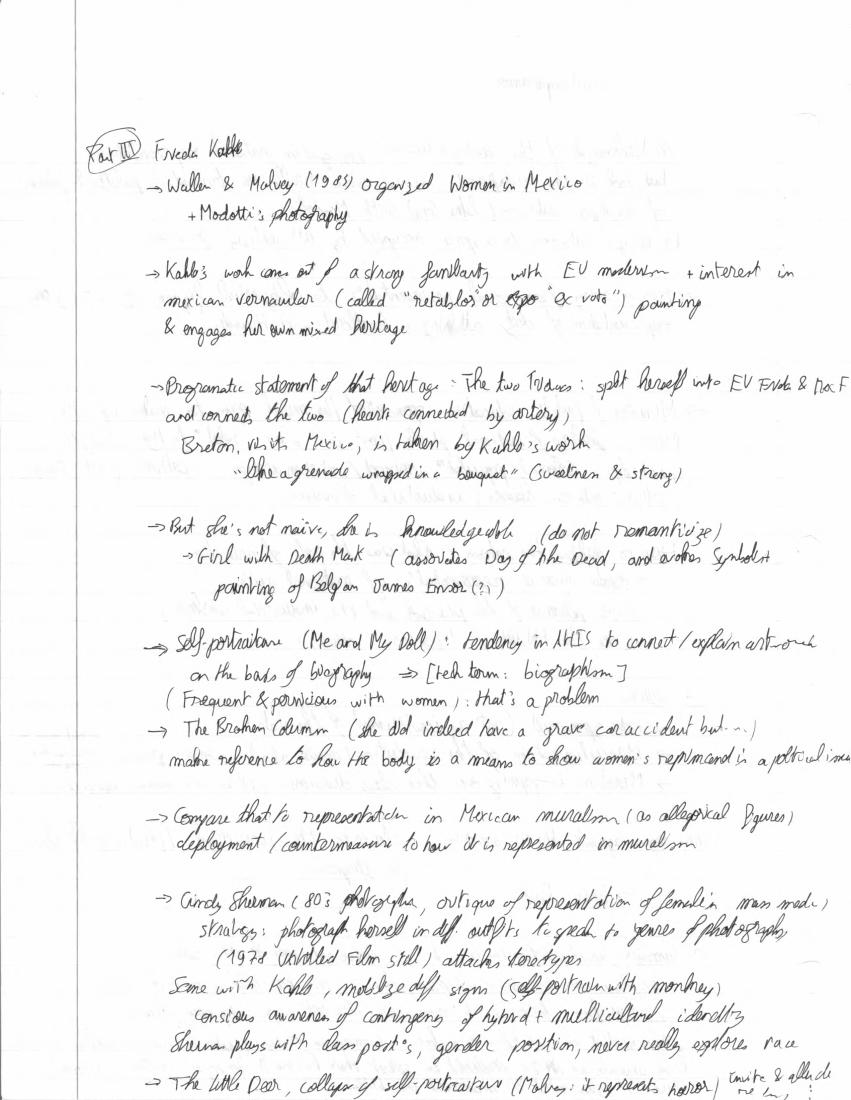 Part III Freda Kahlo
→ Wallen & Mulvey (1985) organized Women in Mexico
+ Modotti's photography
→ Kahlo's work comes out of a strong familiarity with EU modernism + interest in
mexican vernacular (called "retablos" or "ex voto") painting
& engages her own mixed heritage
→ Programatic statement of that heritage : The two Fridas : split herself into EU Freda & Mex F
and connects the two (hearts connected by artery),
Breton, visits Mexico, is taken by Kahlo's work
"like a grenade wrapped in a bouquet" (sweetness & strong)
→ But she's not naive, she is knowledgeable (do not romanticize)
→ Girl with Death Mask (associates Day of the Dead, and evokes Symbolist
painting of Belgian James Ensor (?))
→ Self-portraiture (Me and My Doll) : tendency in to connect/explain artwork
on the basis of biography ⇒ [tech term : biographism]
(Frequent & pernicious with women) : that's a problem
→ The Broken Column (she did indeed have a grave car accident but...)
make reference to how the body is a means to show women's is a political issue
→ Compare that to representation in Mexican muralism (as allegorical figures)
deployment / countermeasure to how it is represented in muralism
→ Cindy Sherman (80's photographer, critique of representation of female in mass media)
strategy : photograph herself in diff. outfits to speak to genres of photography
(1978 Untitled Film still) attacks stereotypes
Same with Kahlo, mobilize diff signs (self-portrait with monkey)
consious awareness of contingency of hybrid + multicultural identity
Sherman plays with class pos't°s, gender position, never really explores race
→ The Little Deer, collapse of self-portraiture (Mulvey : it represents horror) invite & allude